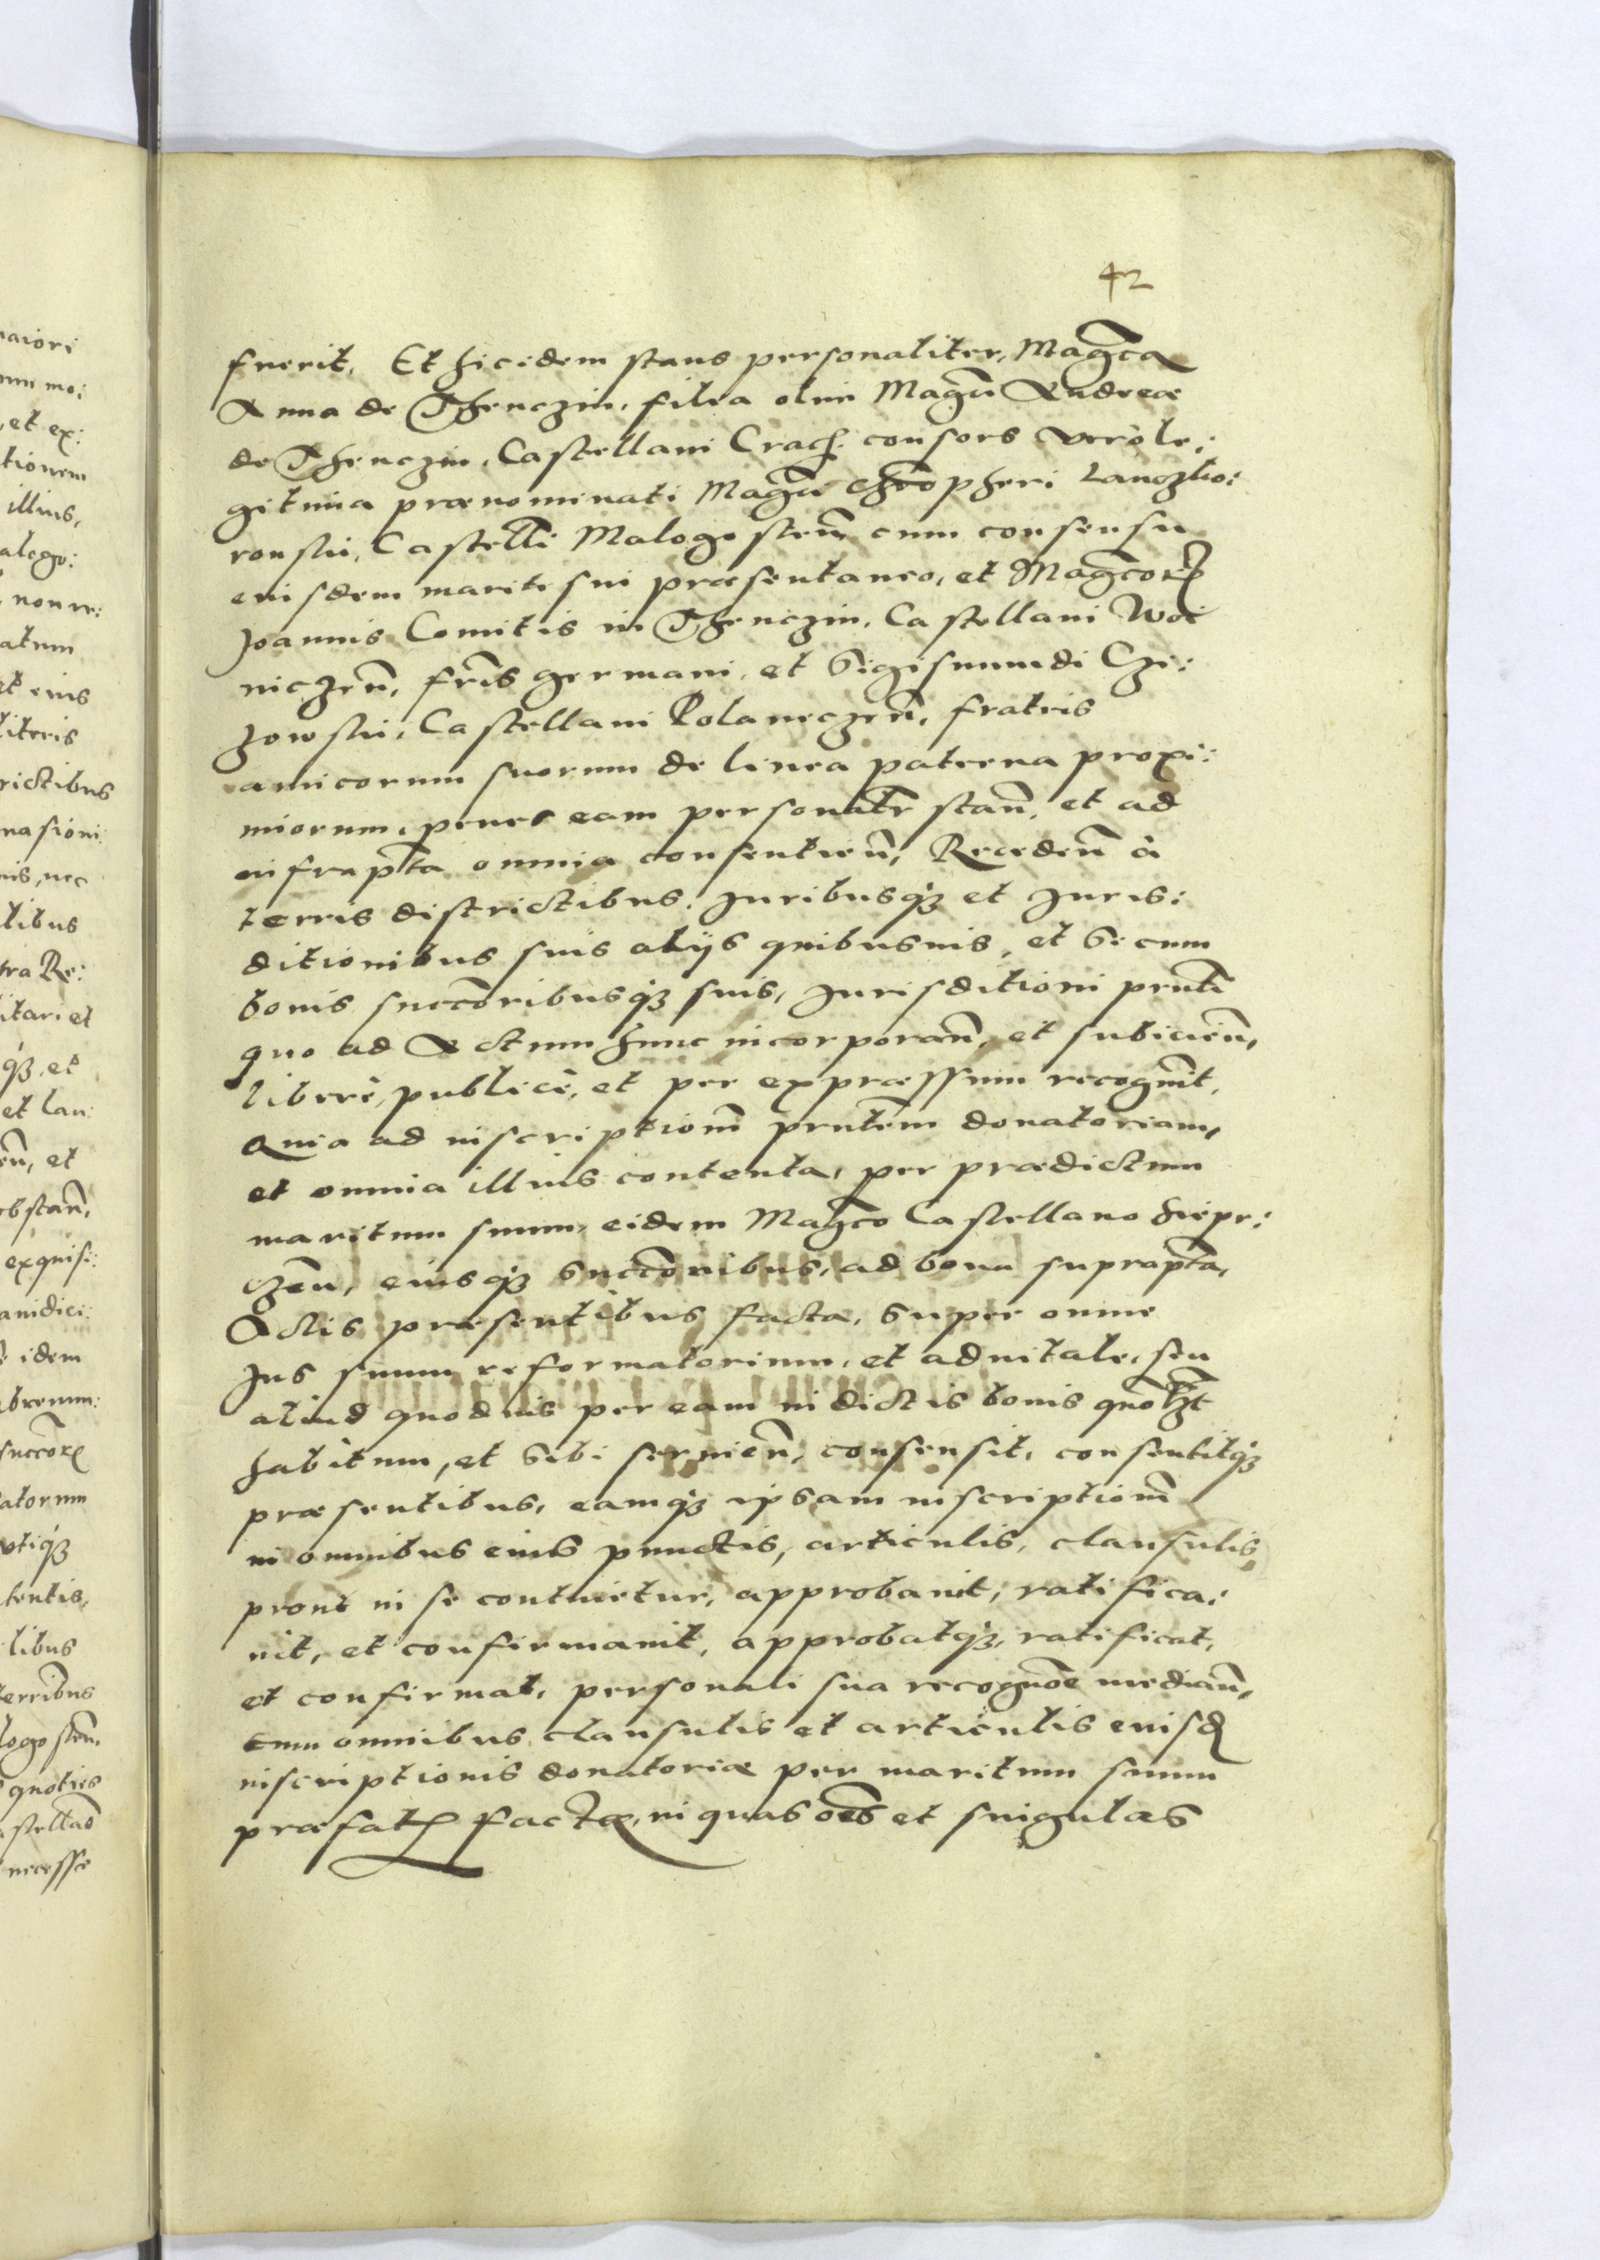 42
fuerit, Et hicidem stans personaliter, Mag̃ca
Anna de Thenczin, filia olim Mag̃ci Andreæ
de Thenczin, Castellani Crac̃. consors vero le:
gitima prænominati Mag̃ci Chr̃ophori Lanczko:
ronski, Castell̃i Malogosteñ cum consensu
eiusdem mariti sui præsentaneo, et Mag̃corꝝ
Joannis Comitis in Thenczin, Castellani Woi
niczeñ, fr̃is germani, et Sigismundi Czi:
zowski, Castellani Polaneczeñ, fratris
amicorum suorum de linea paterna proxi:
miorum, penes eam personal̃r stañ, et ad
infrap̃ta omnia consentieñ, Recedeñ à
terris districtibus, Juribusqꝫ et Juris:
ditionibus suis alijs quibusuis, et Se cum
bonis succc̃oribusqꝫ suis, Jurisditioni pr̃nti
quo ad Actum hunc incorporañ, et subicieñ,
liberè, publicè, et per expræssum recognouit,
Quia ad inscriptioñm pr̃ntem donatoriam,
et omnia illius contenta, per prædictum
maritum suum, eidem Mag̃co Castellano
eiusqꝫ Succc̃oribus, ad bona suprap̃ta,
Actis præsentibus facta, Super omne
Jus suum reformatorium, et aduitale, seu
aliud quoduis per eam in dictis bonis quõlꝫt
habitum, et Sibi seruieñ, consensit, consentitqꝫ
præsentibus, eamqꝫ ipsam inscriptioñm
in omnibus eius punctis, articulis, clausulis,
prout in se continetur, approbauit, ratifica:
uit, et confirmauit, approbatqꝫ, ratificat,
et confirmat, personali sua recogñõe mediañ,
cum omnibus clausulis et articulis eiusdꝫ
inscriptionis donatoriæ per maritum suum
præfatꝫ factæ, in quas oẽs et singulas